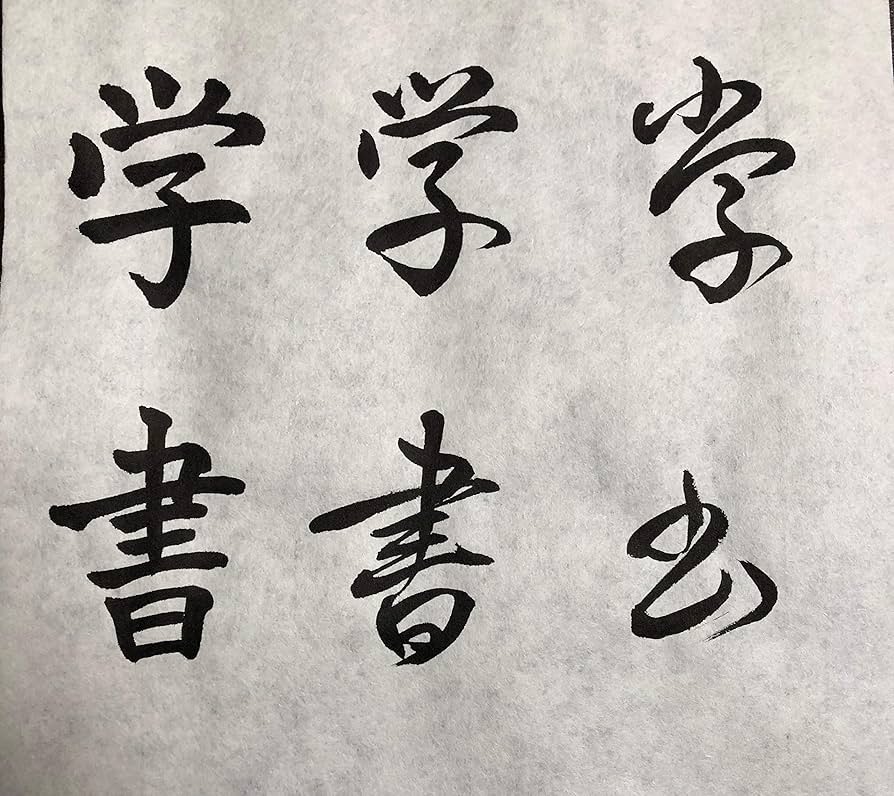 学学学
書書書